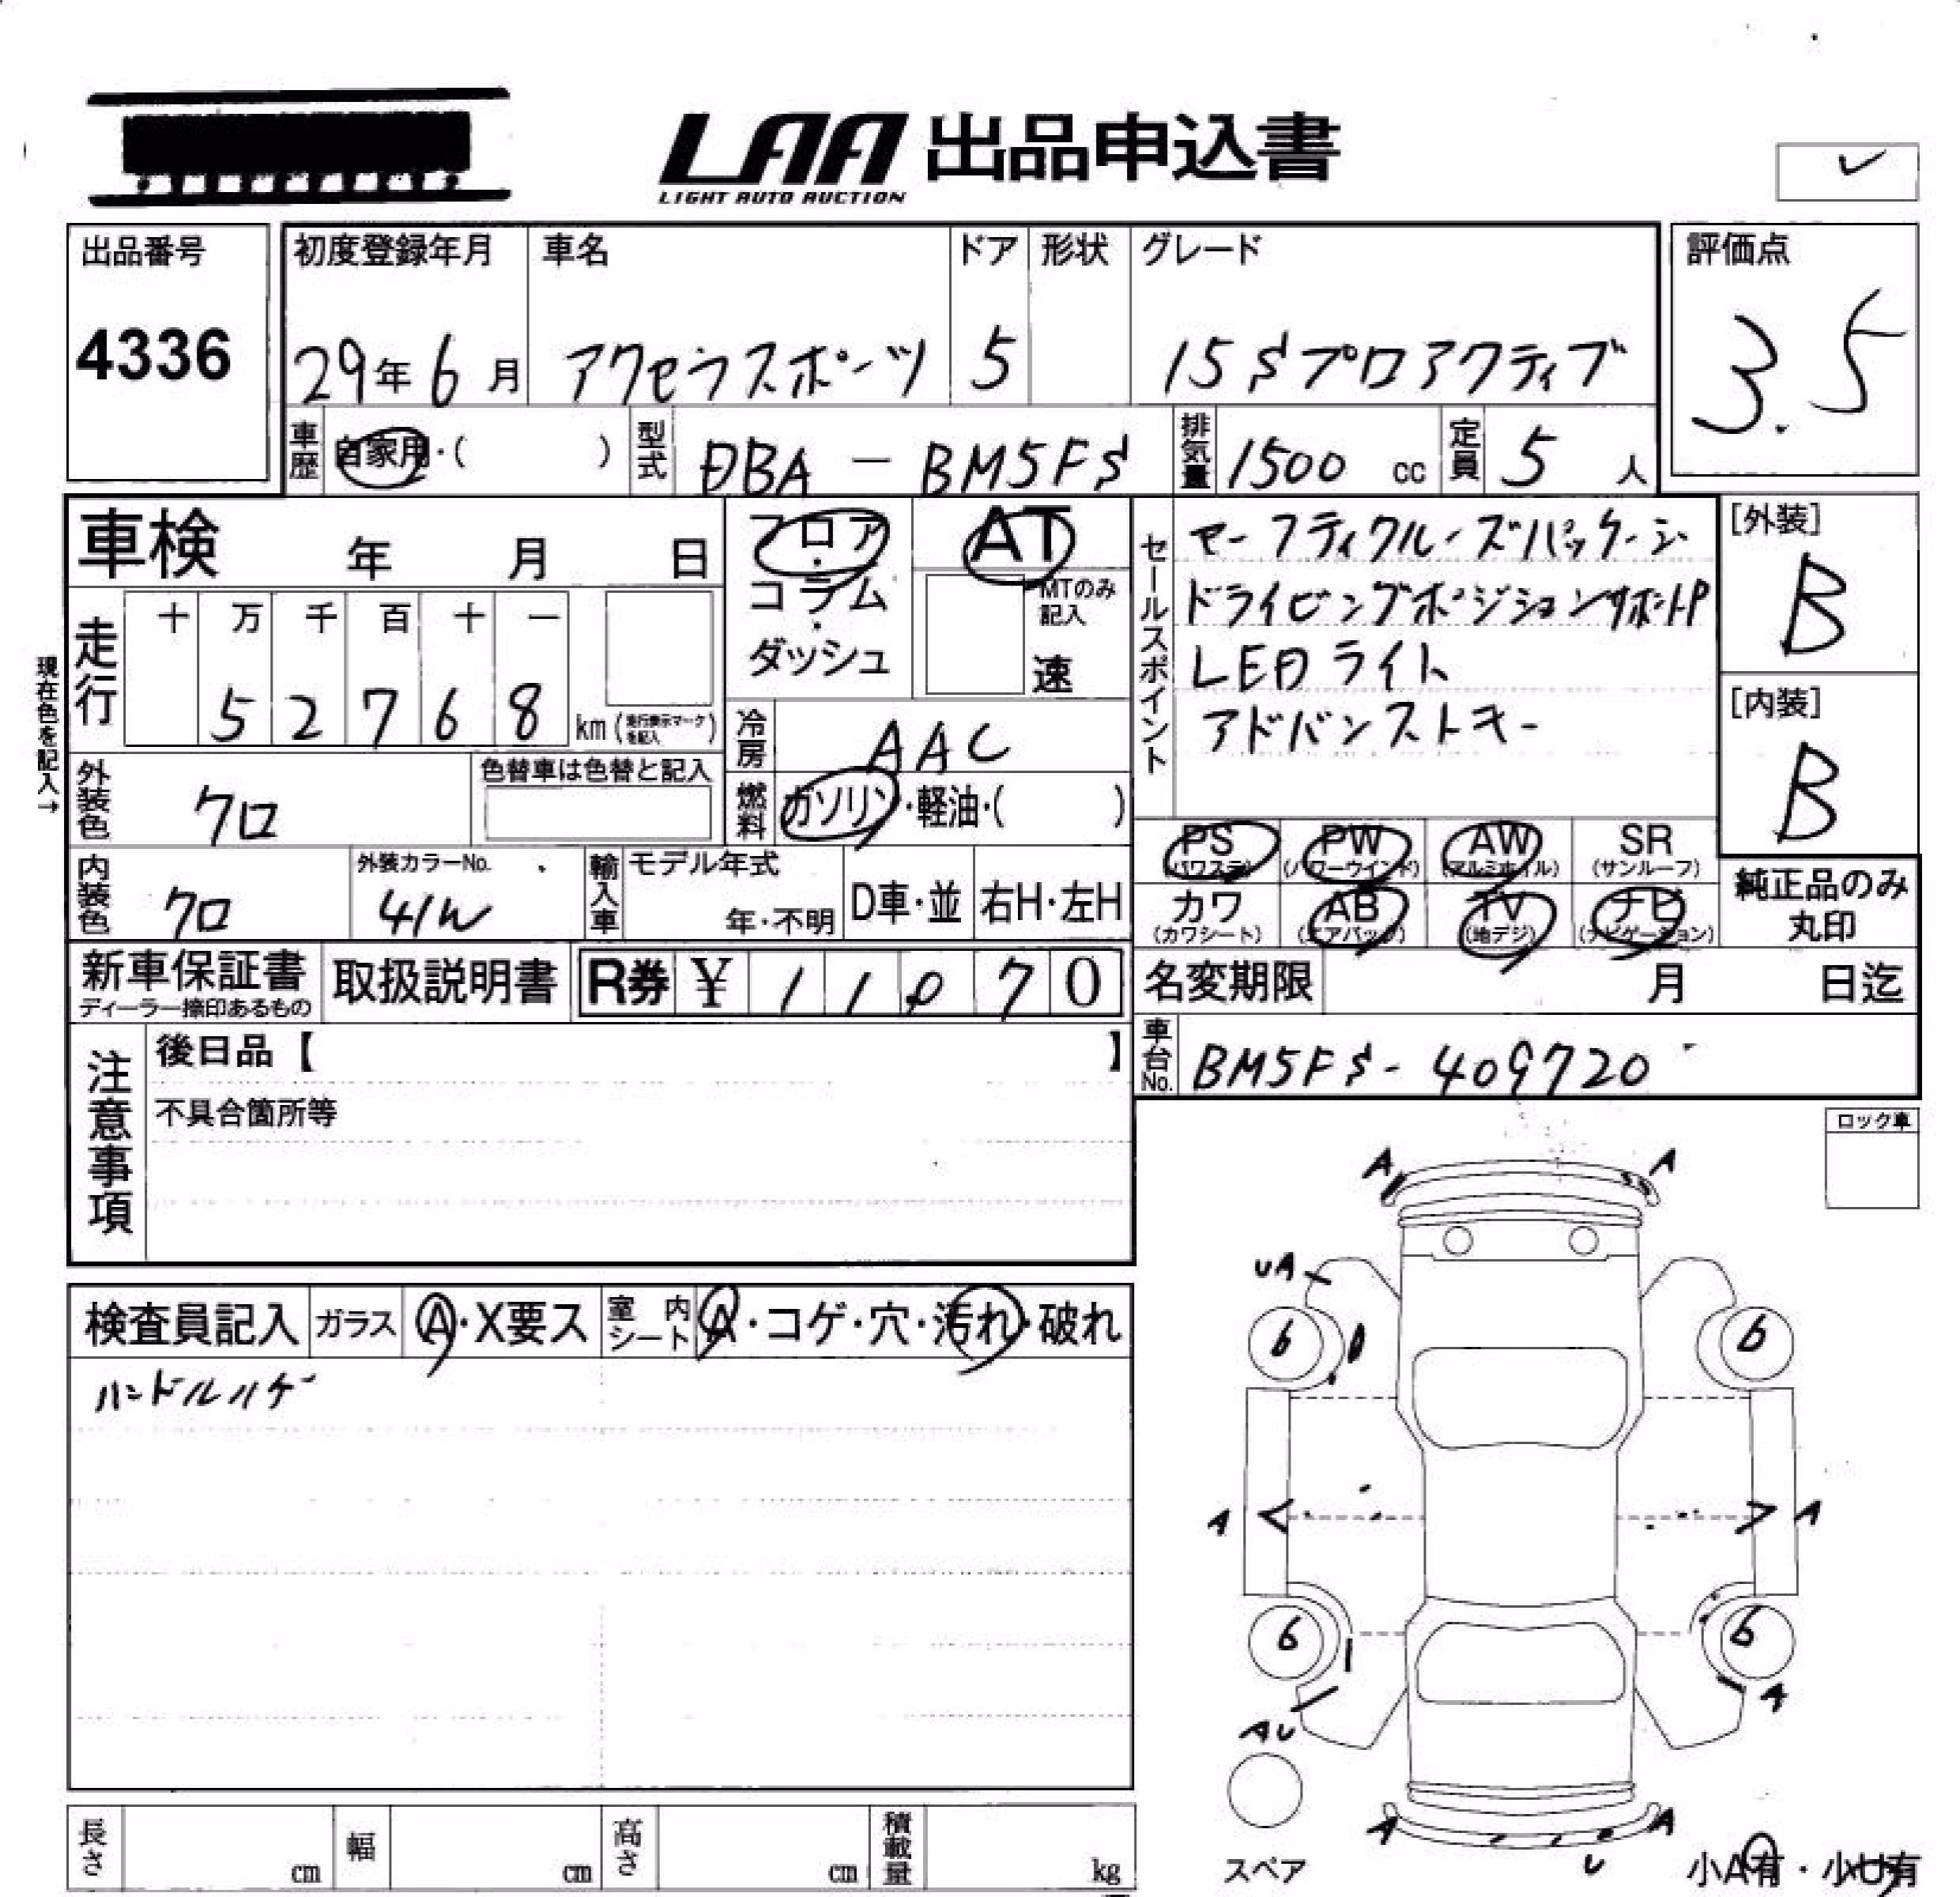 LAA 出品申込書
LIGHT AUTO AUCTION
出品番号
4336
初度登録年月
29年6月
車名
アクセラスポーツ
ドア
5
形状
グレード
15Sプロアクティブ
評価点
3.5
車歴 自家用・( )
型式 DBA-BM5FS
排気量 1500 cc
定員 5 人
車検 年 月 日
フロア・コラム・ダッシュ
AT
MTのみ記入
速
セールスポイント
セーフティクルーズパッケージ
ドライビングポジションサポートP
LEDライト
アドバンストキー
[外装]
B
[内装]
B
現在色を記入→
走行
十 万 千 百 十 一
5 2 7 6 8 km (走行表示マークを記入)
冷房 AAC
燃料 ガソリン・軽油・( )
外装色 クロ
色替車は色替と記入
内装色 クロ
外装カラーNo.
41W
輸入車
モデル年式
年・不明
D車・並
右H・左H
PS (パワステ)
PW (パワーウインド)
AW (アルミホイル)
SR (サンルーフ)
カワ (カワシート)
AB (エアバッグ)
TV (地デジ)
ナビ (ナビゲーション)
純正品のみ丸印
新車保証書
ディーラー捺印あるもの
取扱説明書
R券 ¥ 11070
名変期限 月 日迄
車台No. BM5FS-409720
注意事項
後日品【 】
不具合箇所等
ロック車
検査員記入
ガラス A・X要ス
室内シート A・コゲ・穴・汚れ・破れ
ハンドルハゲ
A A
UA
6 6
A A
6 6
A
AU
スペア
A A
U
小A有・小U有
長さ cm
幅 cm
高さ cm
積載量 kg